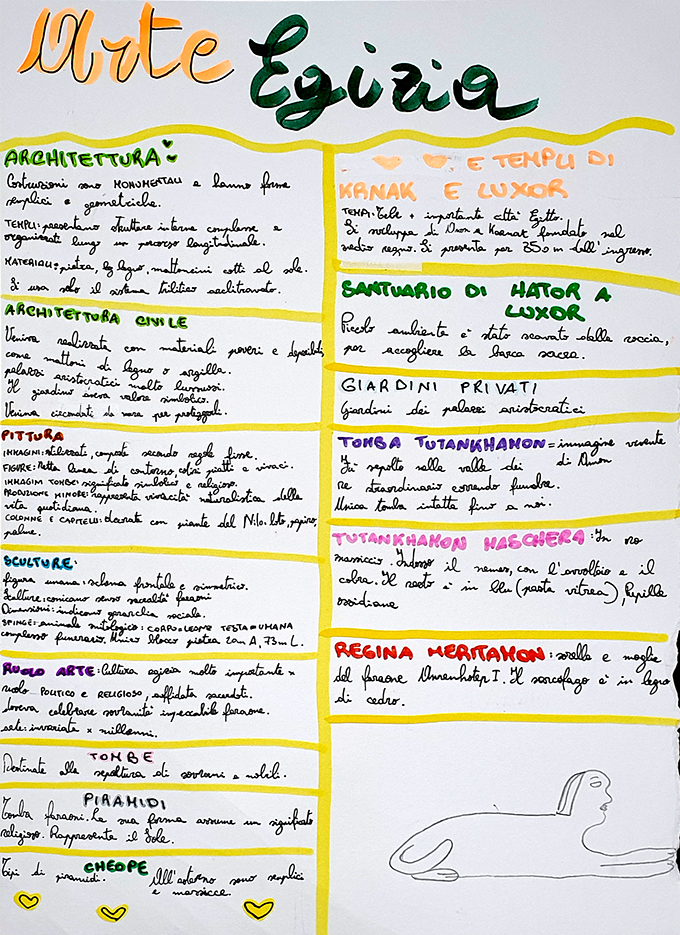 Arte Egizia
ARCHITETTURA:
Costruzioni sono MONUMENTALI e hanno forme
semplici e geometriche.
TEMPLI: presentano strutture interne complesse e
organizzati lungo un percorso longitudinale.
MATERIALI: pietra, legno, mattoncini cotti al sole.
Si usa solo il sistema trilitico architravato.
ARCHITETTURA CIVILE
Veniva realizzata con materiali poveri e deperibili
come mattoni di legno o argilla.
palazzi aristocratici molto lussuosi.
Il giardino aveva valore simbolico.
Veniva circondati da mura per proteggerli.
PITTURA
IMMAGINI: stilizzati, composte secondo regole fisse.
FIGURE: Netta linea di contorno, colori piatti e vivaci.
IMMAGINI TOMBE: significato simbolico e religioso.
PRODUZIONE MINORE: rappresenta vivacità naturalistica della
vita quotidiana.
COLONNE E CAPITELLI: decorate con piante del Nilo. loto, papiro,
palme.
SCULTURE:
figura umana: schema frontale e simmetrico.
Sculture: comicano senso sacralità faraoni
Dimensioni: indicano gerarchia sociale.
SFINGE: animale mitologico: CORPO = LEONE TESTA = UMANA
complesso funerario. Unico blocco pietra 20m A, 73m L.
RUOLO ARTE: Cultura egizia molto importante x
ruolo POLITICO E RELIGIOSO, affidata sacerdoti.
doveva celebrare sovranità impeccabile faraone.
arte: invariata x millenni.
TOMBE
Destinate alla sepoltura di sovrani e nobili.
PIRAMIDI
Tomba faraoni. La sua forma assume un significato
religioso. Rappresenta il Sole.
CHEOPE
Tipi di piramidi. All'esterno sono semplici
e massicce.
E TEMPLI DI
KRNAK E LUXOR
TEMPI: Tebe + importante città Egitto.
Si sviluppa di Dion e Karnak fondato nel
medio regno. Si presenta per 350 m dell'ingresso.
SANTUARIO DI HATOR A
LUXOR
Piccolo ambiente è stato scavato dalla roccia,
per accogliere la barca sacra.
GIARDINI PRIVATI
Giardini dei palazzi aristocratici
TOMBA TUTANKHAMON = immagine vivente
di Amon
Fu sepolto nella valle dei
re straordinario corredo funebre.
Unica tomba intatta fino a noi.
TUTANKHAMON MASCHERA: In oro
massiccio. Indosso il nemes, con l'avvoltoio e il
cobra. Il resto è in blu (pasta vitrea), Pupille
ossidiana
REGINA MERITAMON: sorella e moglie
del faraone Amenhotep I. Il sarcofago è in legno
di cedro.